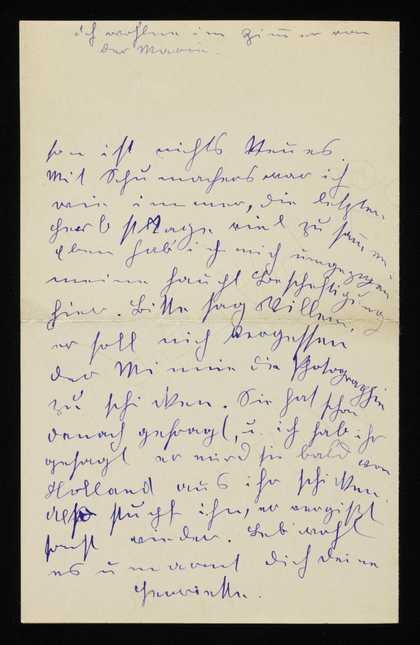 Ich wohne im Zimmer von
der Marie.
son ist nichts Neues.
Mit Schumachers war ich
wie immer, die letzten
Herbsttage viel zusammen.
eben hab ich mich umgezogen
meine haupt Beschäftigung
hier. Bitte sag Willem,
er soll nich vergessen
der Minnie die Photographie
zu schicken. Sie hat schon
danach gefragt, u. ich hab ihr
gesagt er wird sie bald von
Holland aus ihr schicken.
also stupft ihn, er vergißt
sonst wieder. Leb wohl
es umarmt dich deine
Henriette.